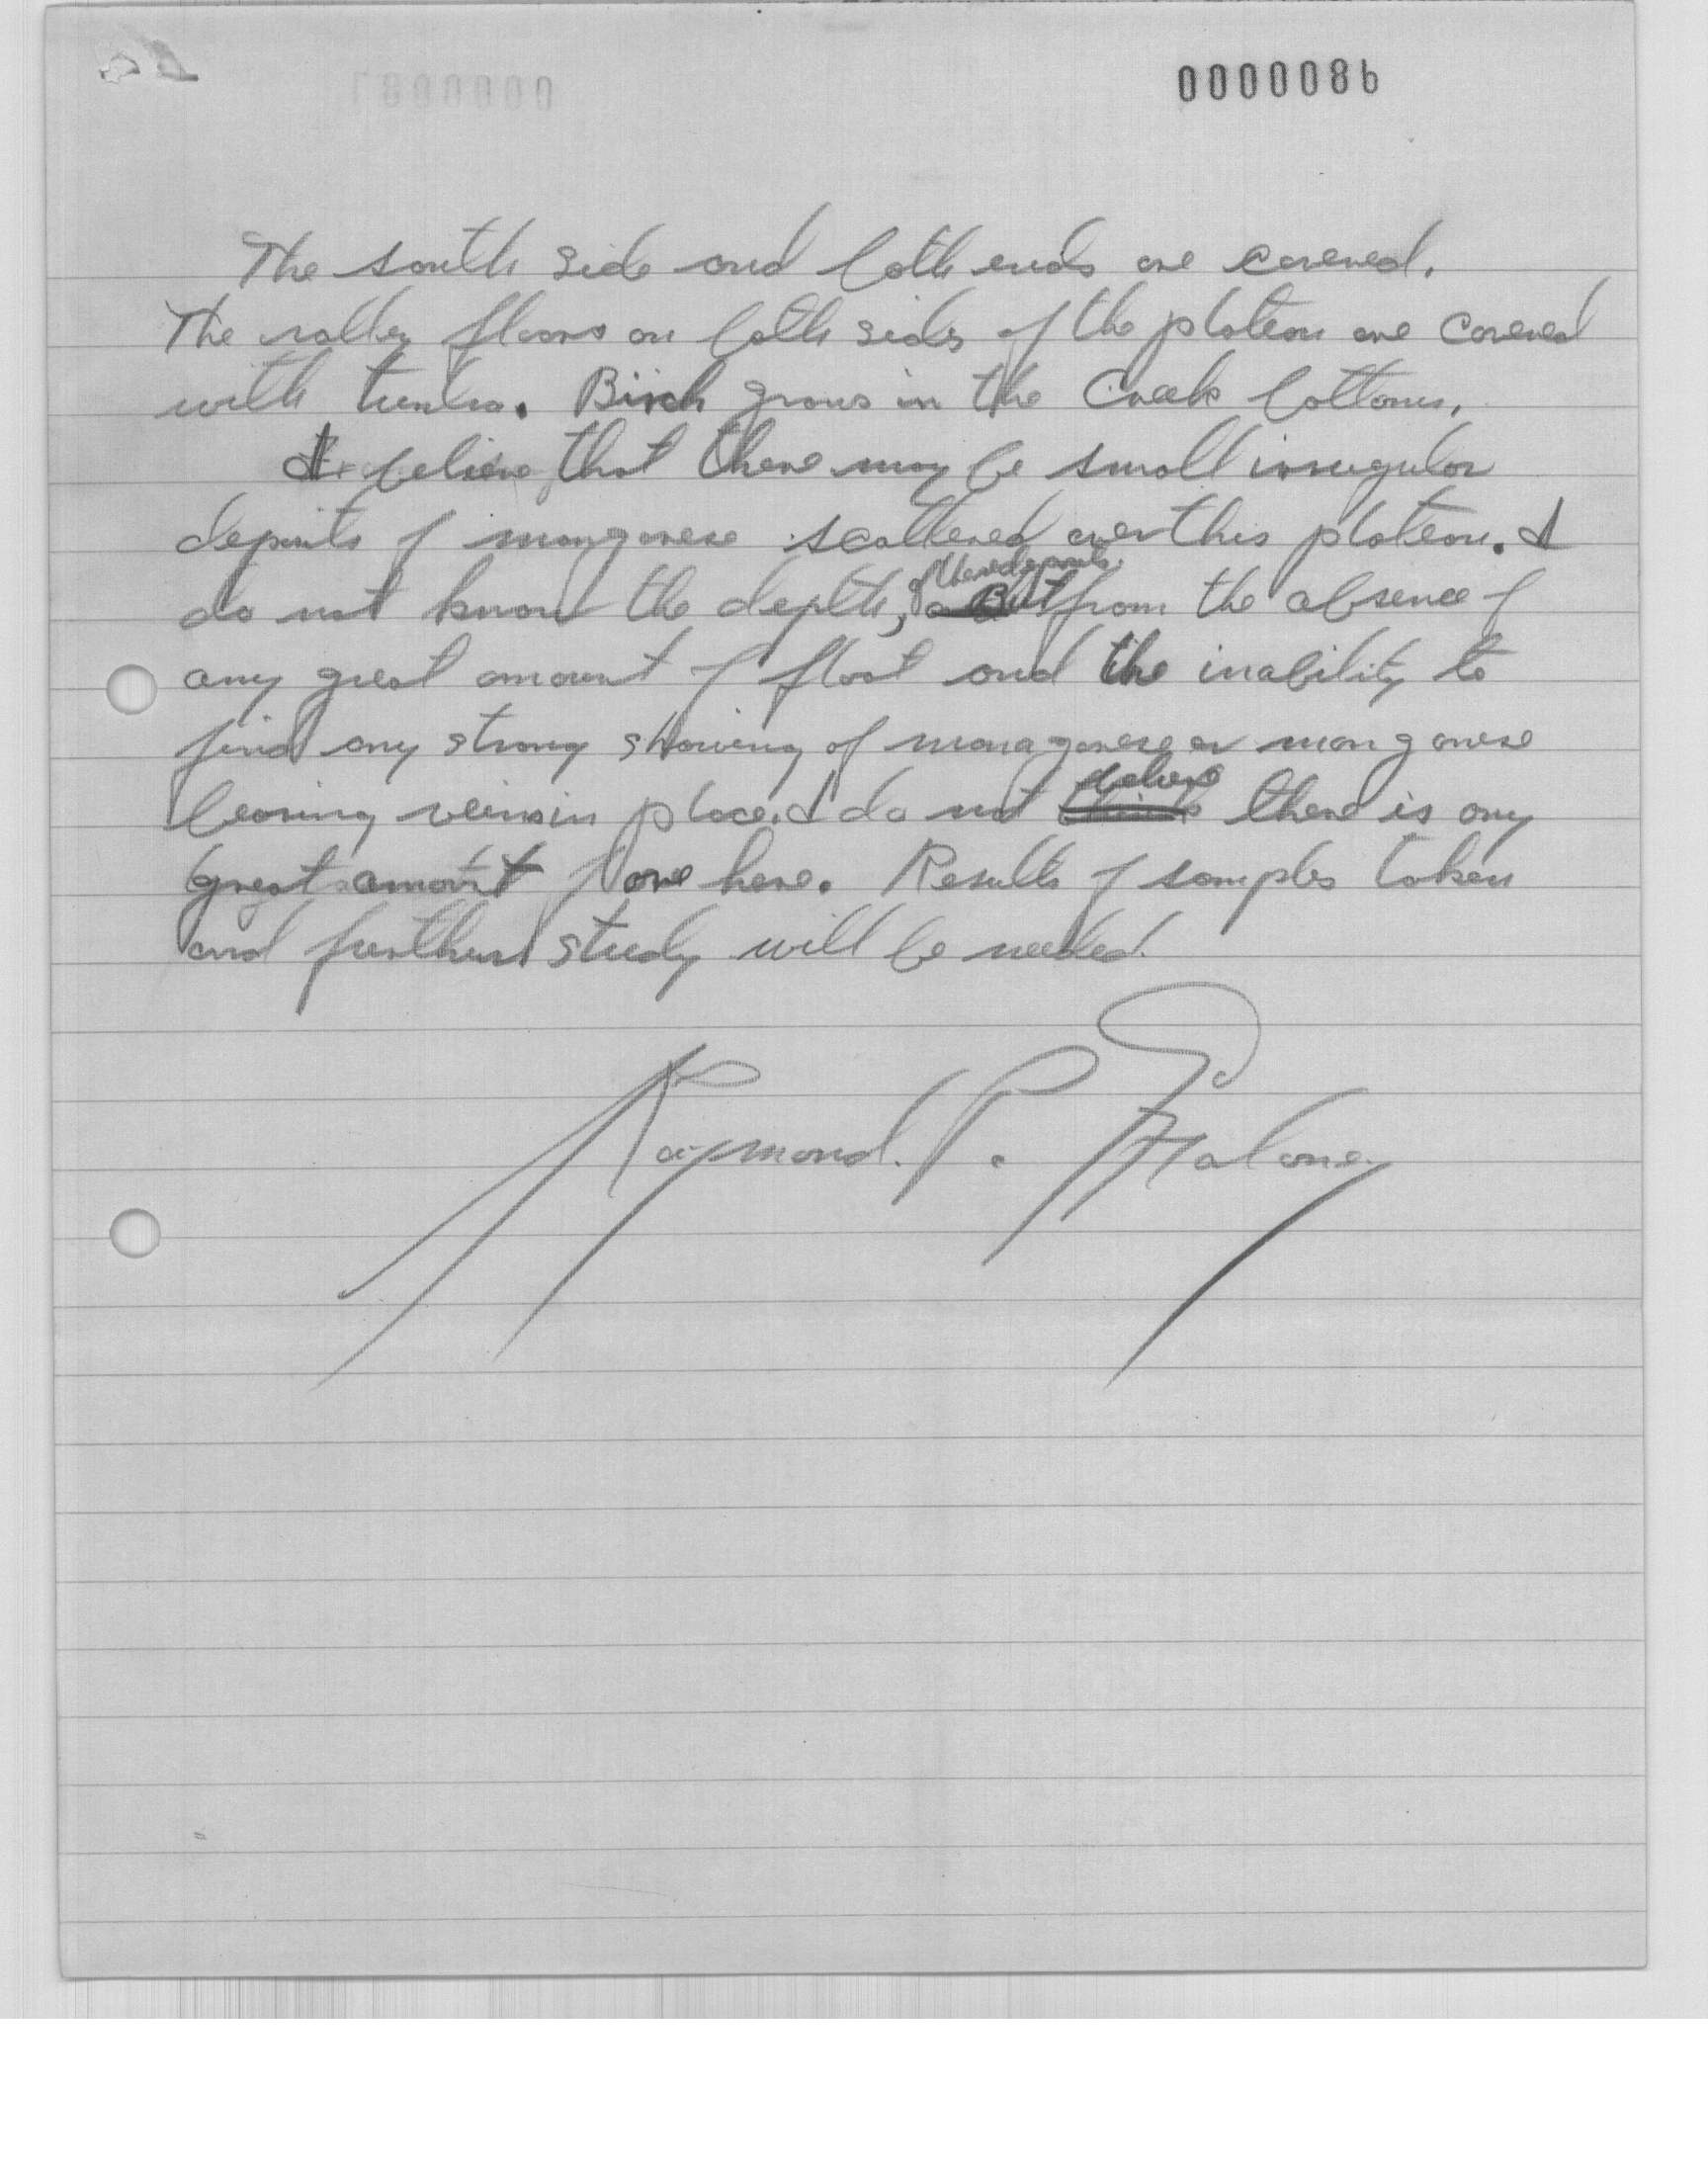 0000086
The south side and both ends are covered.
The valley floors on both sides of the plateau are covered
with tundra. Birch grows in the Creek bottoms.
I believe that there may be small irregular
deposits of manganese scattered over this plateau. I
of these deposits
do not know the depth, But from the absence of
any great amount of float and the inability to
find any strong showing of managanese or manganese
believe
bearing veins in place I do not think there is any
great amount of ore here. Results of samples taken
and further study will be needed.
Raymond P. Maloney